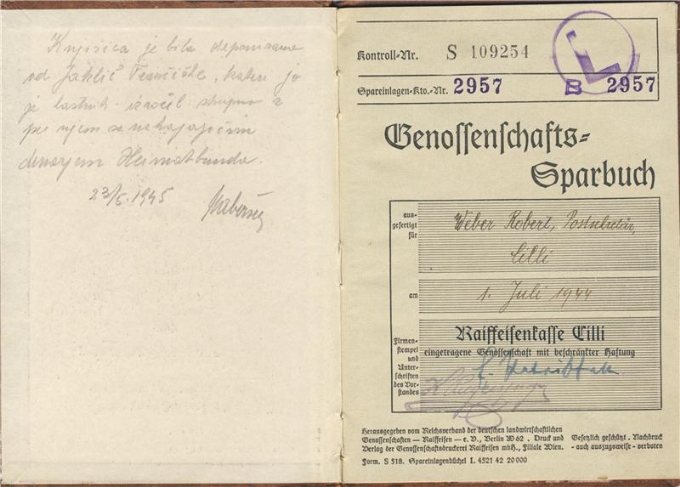 Knjižica je bila
od Jaklič Frančiške, kateri jo
je lastnik izročil skupno z
po njem se nahajajočim
denarjem Heimatbunda.
23/5. 1945
Kontroll-Nr. S 109254
L
Spareinlagen-Kto.-Nr. 2957 B 2957
Genossenschafts-
Sparbuch
aus-
gefertigt
für
Weber Robert,
Cilli
am 1. Juli 1944
Firmen-
stempel
und
Unter-
schriften
des Vor-
standes
Raiffeisenkasse Cilli
eingetragene Genossenschaft mit beschränkter Haftung
Herausgegeben vom Reichsverband der deutschen landwirtschaftlichen
Genossenschaften — Raiffeisen — e. V., Berlin W 62 . Druck und
Verlag der Genossenschaftsdruckerei Raiffeisen mbH., Filiale Wien.
Gesetzlich geschützt . Nachdruck
- auch auszugsweise - verboten
Form. S 518. Spareinlagenbüchel I. 4521 42 20 000